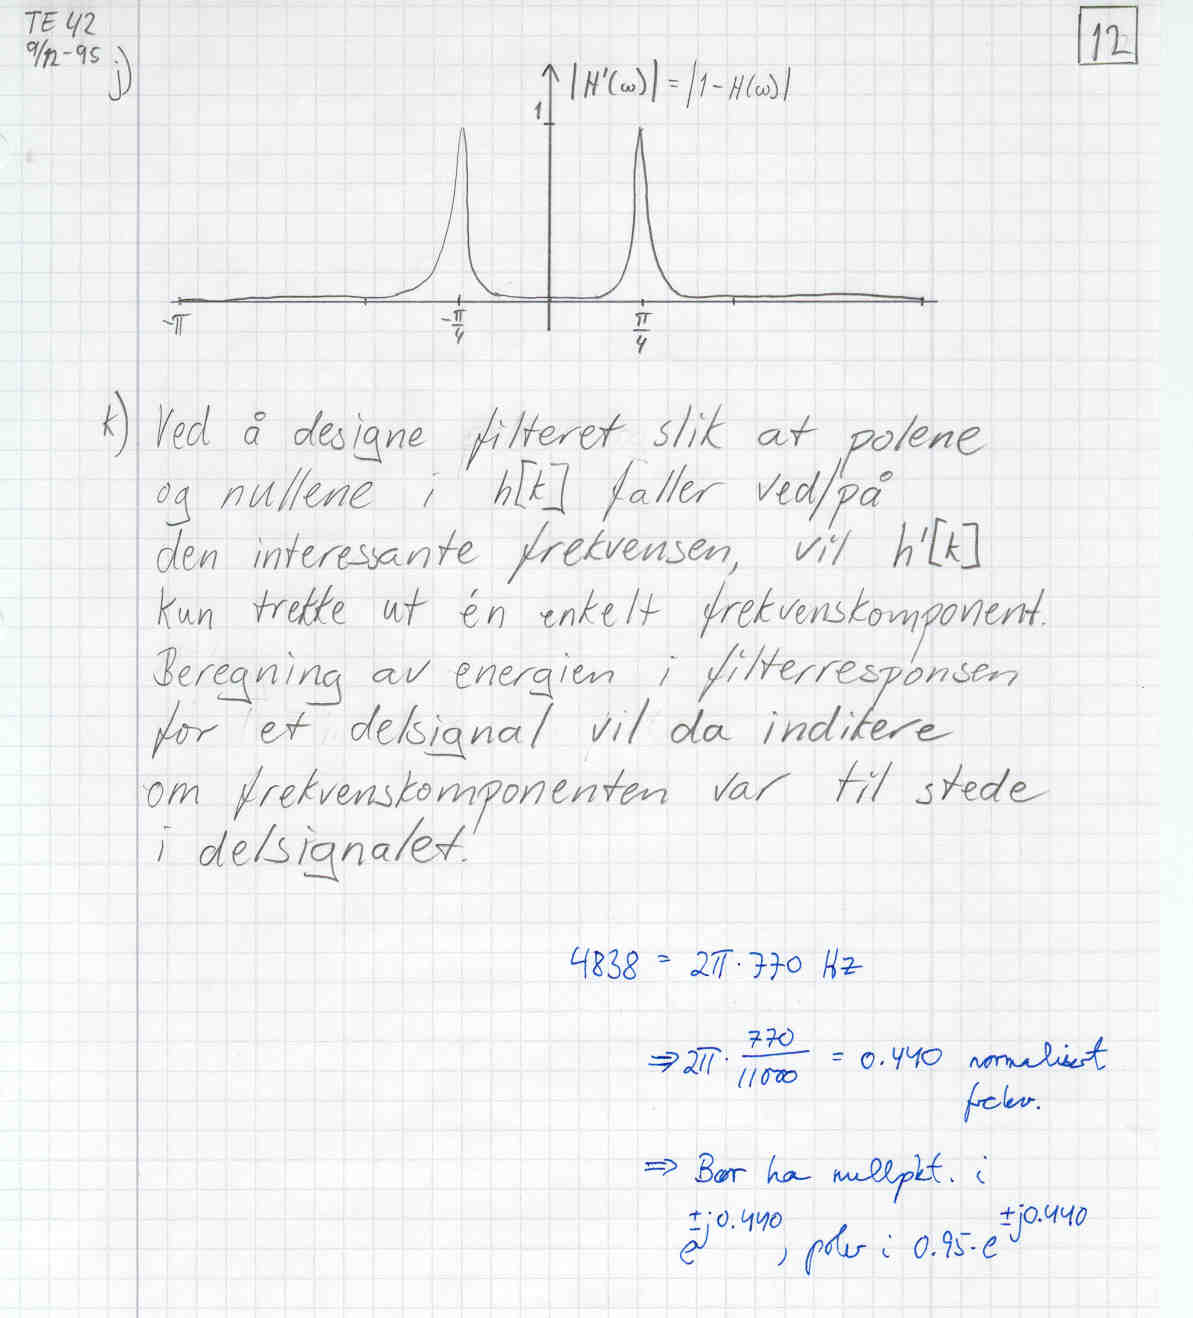 TE 42
9/12-95
12
j)
|H'(ω)| = |1-H(ω)|
1
-π
-π/4
π/4
k) Ved å designe filteret slik at polene
og nullene i h[k] faller ved/på
den interessante frekvensen, vil h'[k]
kun trekke ut én enkelt frekvenskomponent.
Beregning av energien i filterresponsen
for et delsignal vil da indikere
om frekvenskomponenten var til stede
i delsignalet.
4838 = 2π·770 Hz
⇒ 2π · 770/11000 = 0.440 normalisert
frekv.
⇒ Bør ha nullpkt. i
e^±j0.440, poler i 0.95·e^±j0.440